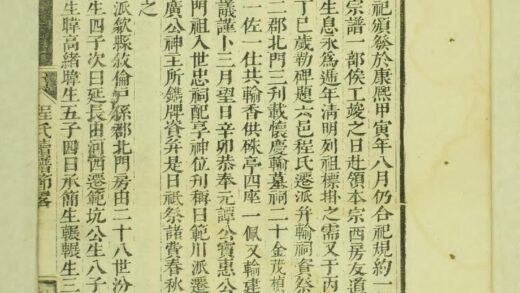 祀頒發於康熙甲寅年八月仍合祀規約一
宗譜一部俟工竣之日赴領本宗西房友道
生息永爲遞年淸明列祖標掛之需又于丙
丁巳歲勒碑題六邑程氏遷派幷輸祠資祭
二郡北門三刋載懷慶輸墓祠二十金茂楨
一佐一仕共輸香供硃亭四座一佩又輸建
議謹卜三月望日辛卯恭奉元譚公實惠公
門祖入世忠祠配享神位刋稱曰範川派遷
廣公神主所鐫牌資幷是日祇祭諸費春秋
之
派歙縣敘倫戸係郡北門房由二十八世汾
生四子次曰延長由河西遷範坑公生八子
生緯高緒墇生五子四曰承簡生輾輾生三
程氏譜節畧